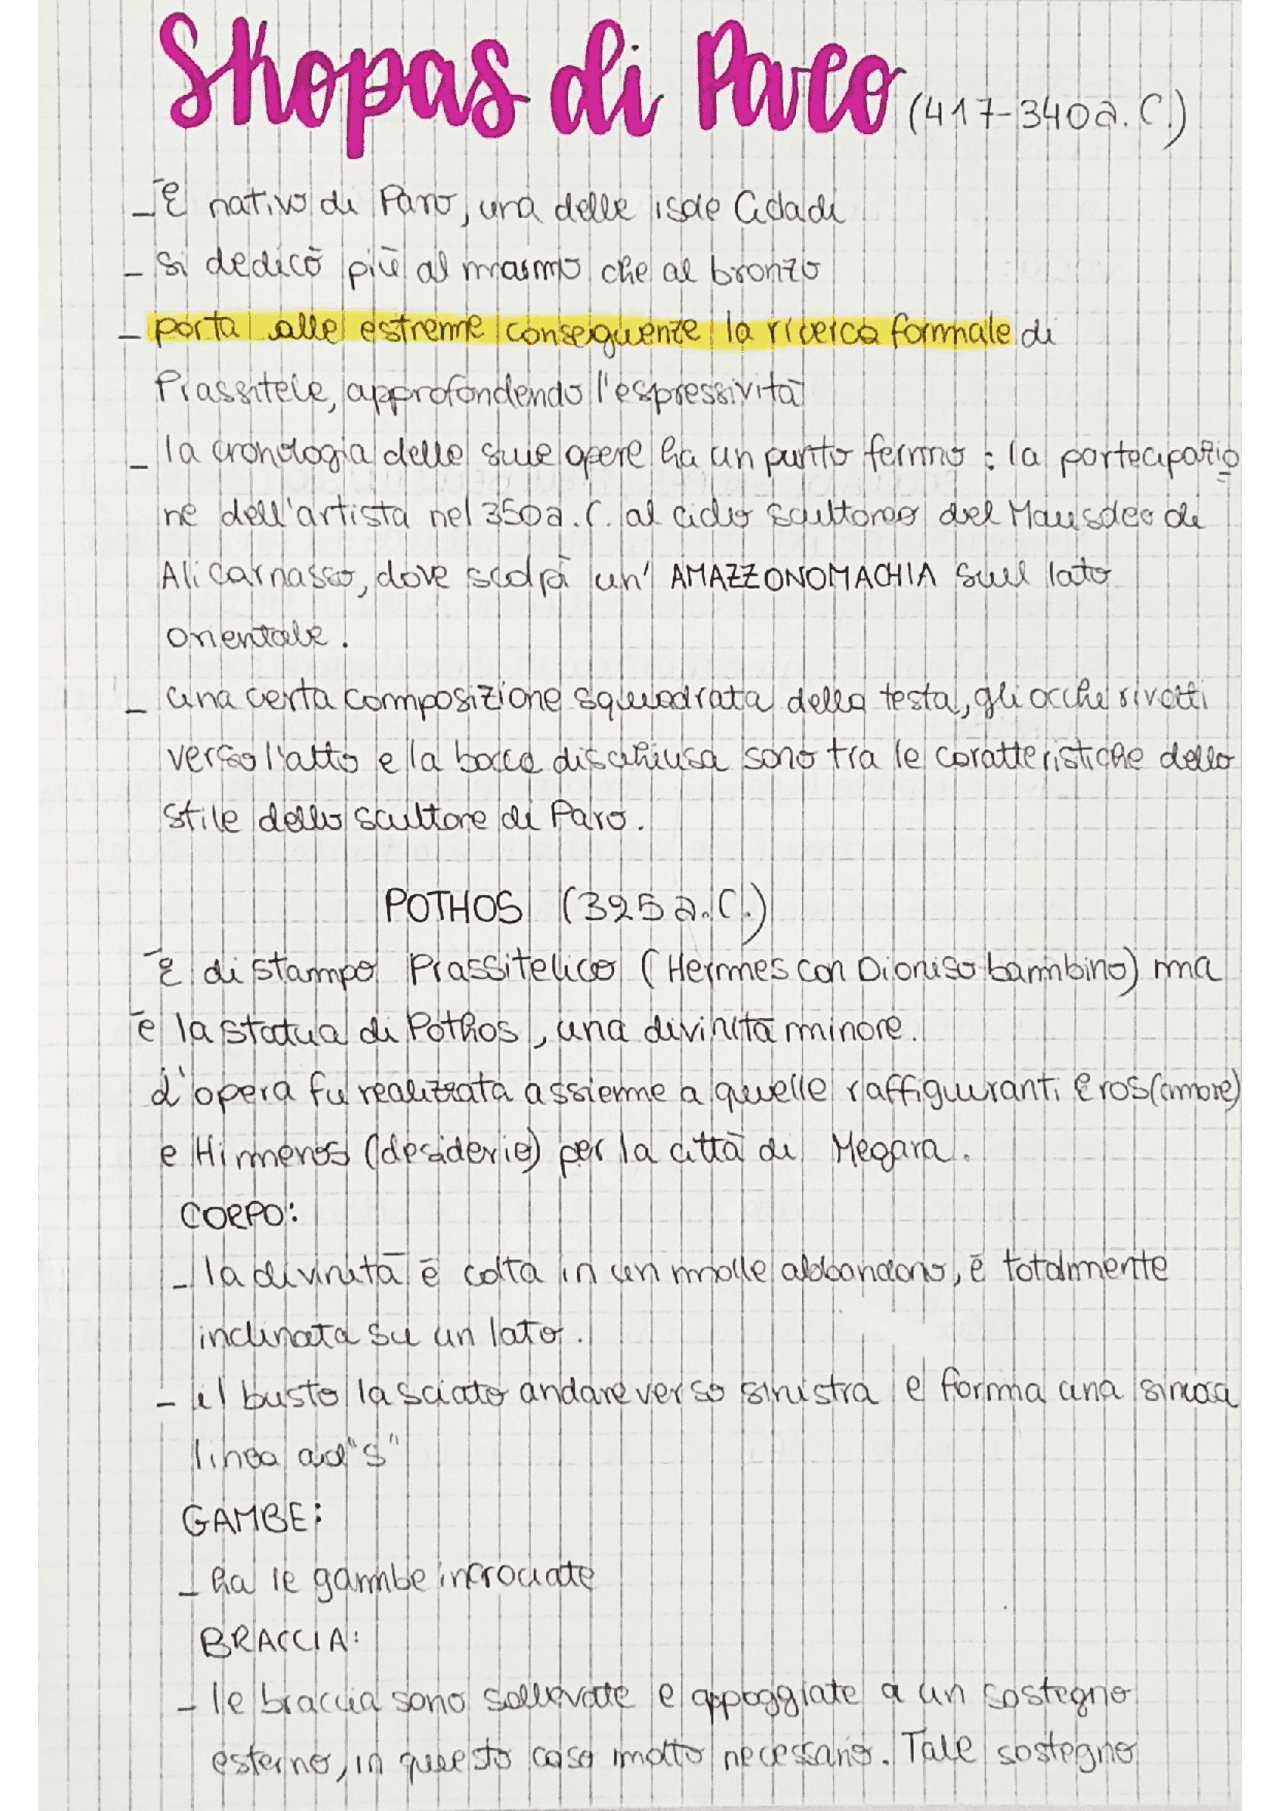 Skopas di Paro (417-340 a.C.)
- È nativo di Paro, una delle isole Cicladi
- si dedicò più al marmo che al bronzo
- porta alle estreme conseguenze la ricerca formale di
Prassitele, approfondendo l'espressività
- la cronologia delle sue opere ha un punto fermo : la partecipazio
ne dell'artista nel 350 a.C. al ciclo scultoreo del Mausoleo di
Alicarnasso, dove scolpì un' AMAZZONOMACHIA sul lato
orientale.
- una certa composizione squadrata della testa, gli occhi rivolti
verso l'alto e la bocca dischiusa sono tra le caratteristiche dello
stile dello scultore di Paro.
POTHOS (325 a.C.)
È di stampo Prassitelico (Hermes con Dioniso bambino) ma
è la statua di Pothos, una divinità minore.
L'opera fu realizzata assieme a quelle raffiguranti Eros (amore)
e Himeros (desiderio) per la città di Megara.
CORPO:
- la divinità è colta in un molle abbandono, è totalmente
inclinata su un lato.
- il busto lasciato andare verso sinistra e forma una sinuosa
linea ad "S"
GAMBE:
- ha le gambe incrociate
BRACCIA:
- le braccia sono sollevate e appoggiate a un sostegno
esterno, in questo caso molto necessario. Tale sostegno